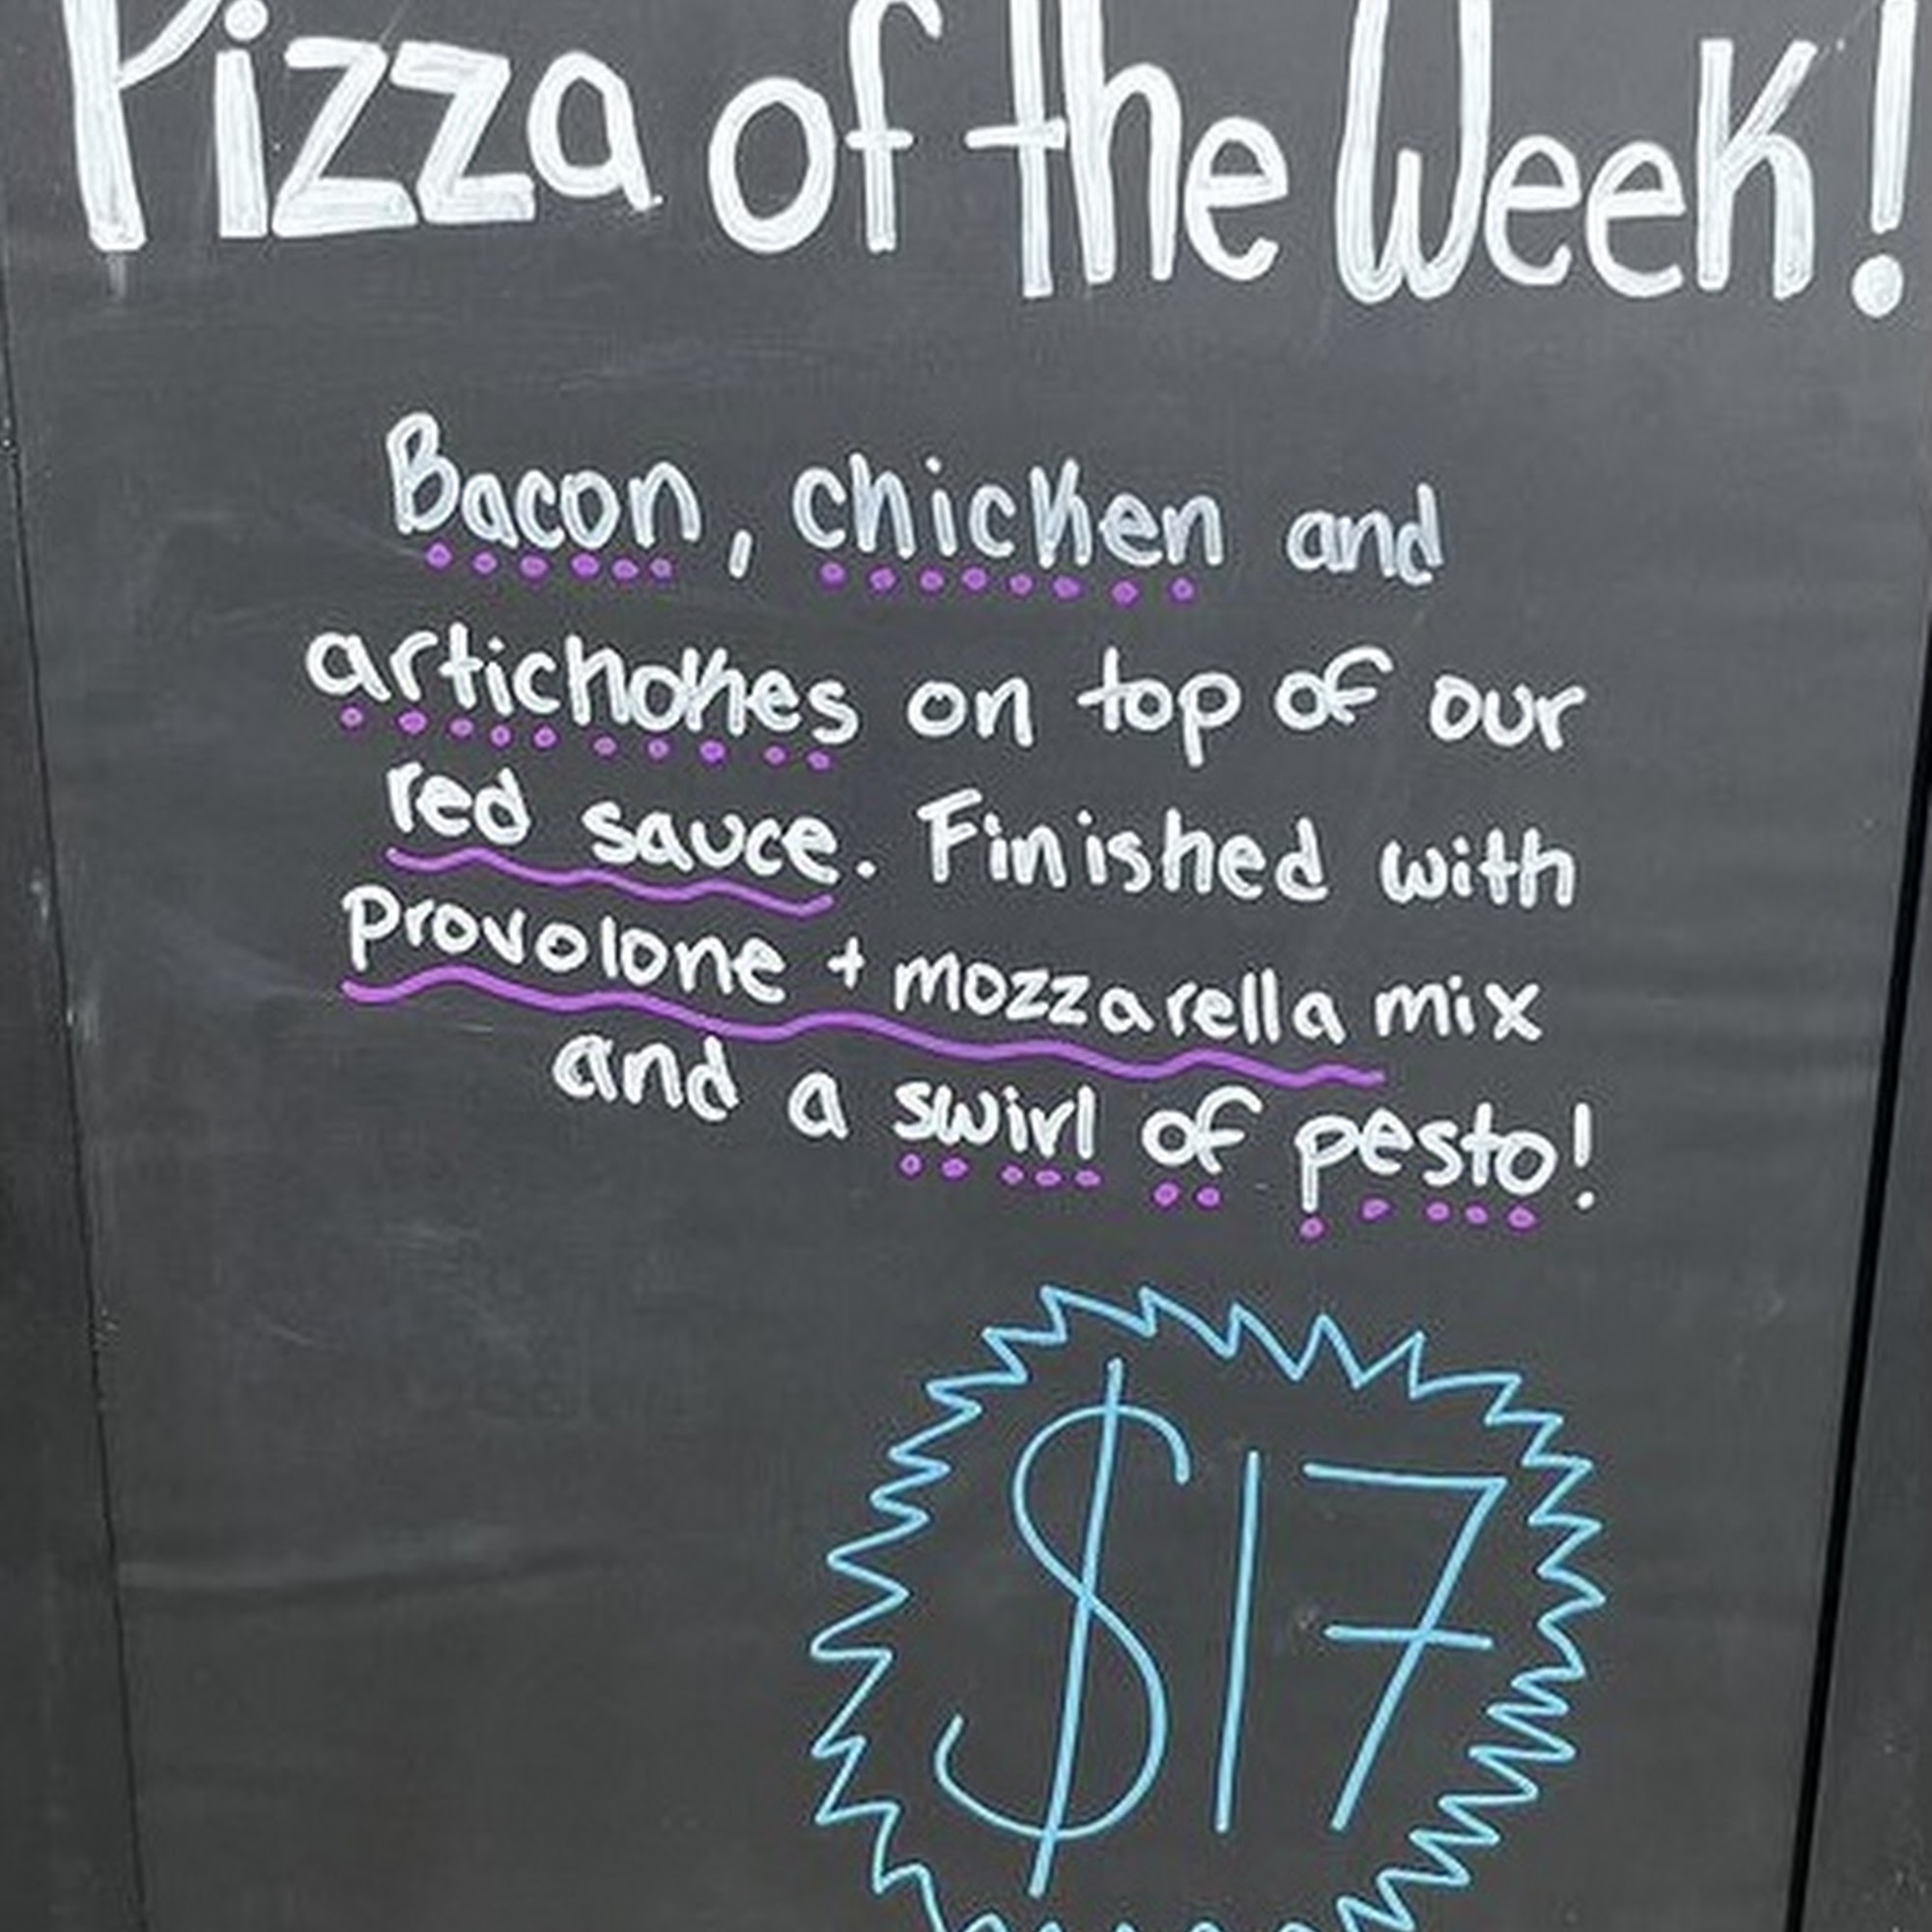 Pizza of the Week!
Bacon, chicken and
artichokes on top of our
red sauce. Finished with
provolone + mozzarella mix
and a swirl of pesto!
$17